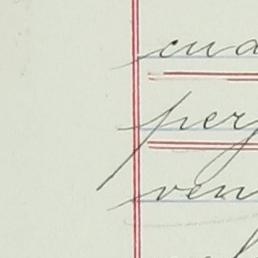 cua
per
ven